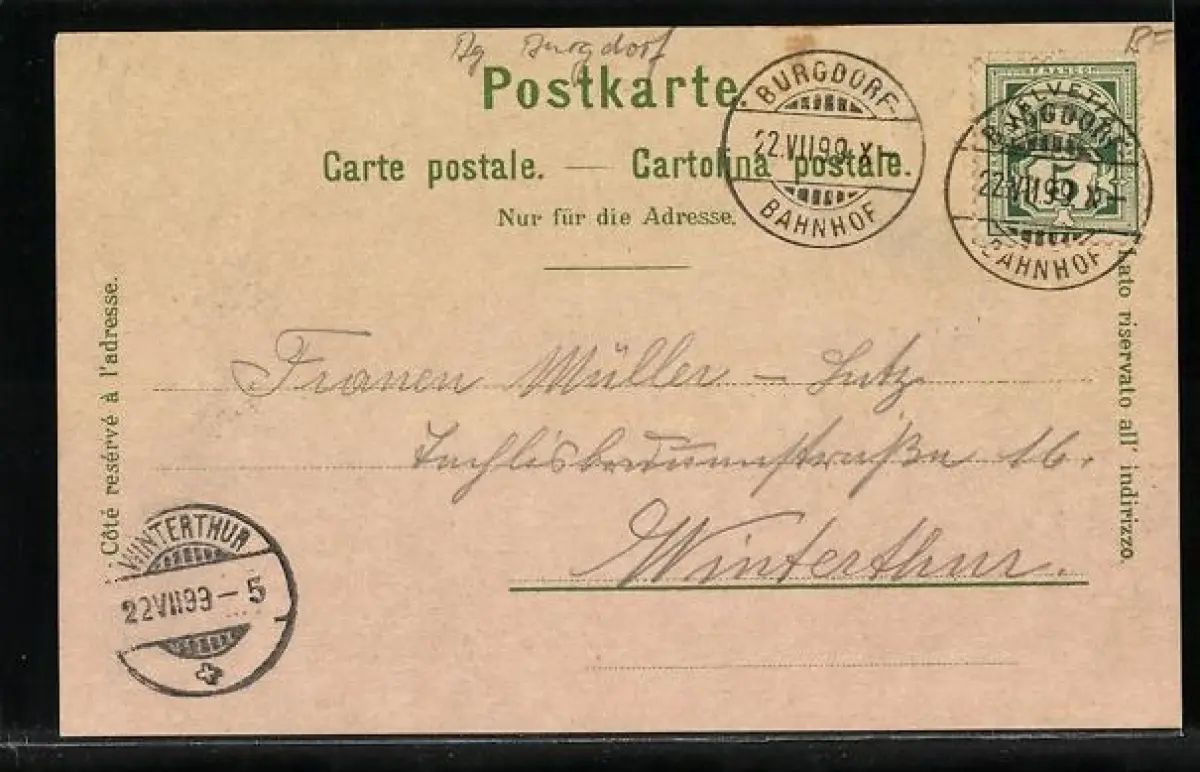 Burgdorf
Postkarte.
Carte postale. — Cartolina postale.
Nur für die Adresse.
BURGDORF
22.VII.99.X–
BAHNHOF
FRANCO
HELVETIA
5
BURGDORF
22.VII.99.X–
BAHNHOF
Côté resérvé à l'adresse.
Lato riservato all' indirizzo.
Frauen Müller – Lutz
straße 16.
Winterthur.
WINTERTHUR
22 VII 99 – 5